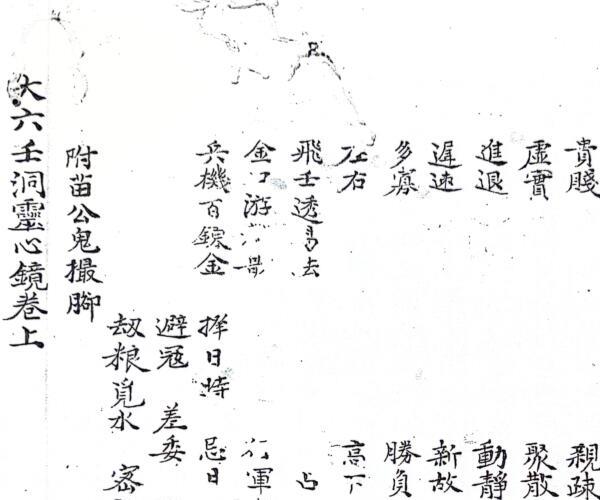 貴賤 親疎
虛實 聚散
進退 動靜
遲速 新故
多寡 勝負
左右 高下
飛壬透易 占
金口游 行軍
兵機百鍊金 擇日時 忌日
避冦 差委
刼粮覓水 密
附苗公鬼撮脚
大六壬洞靈心鏡卷上